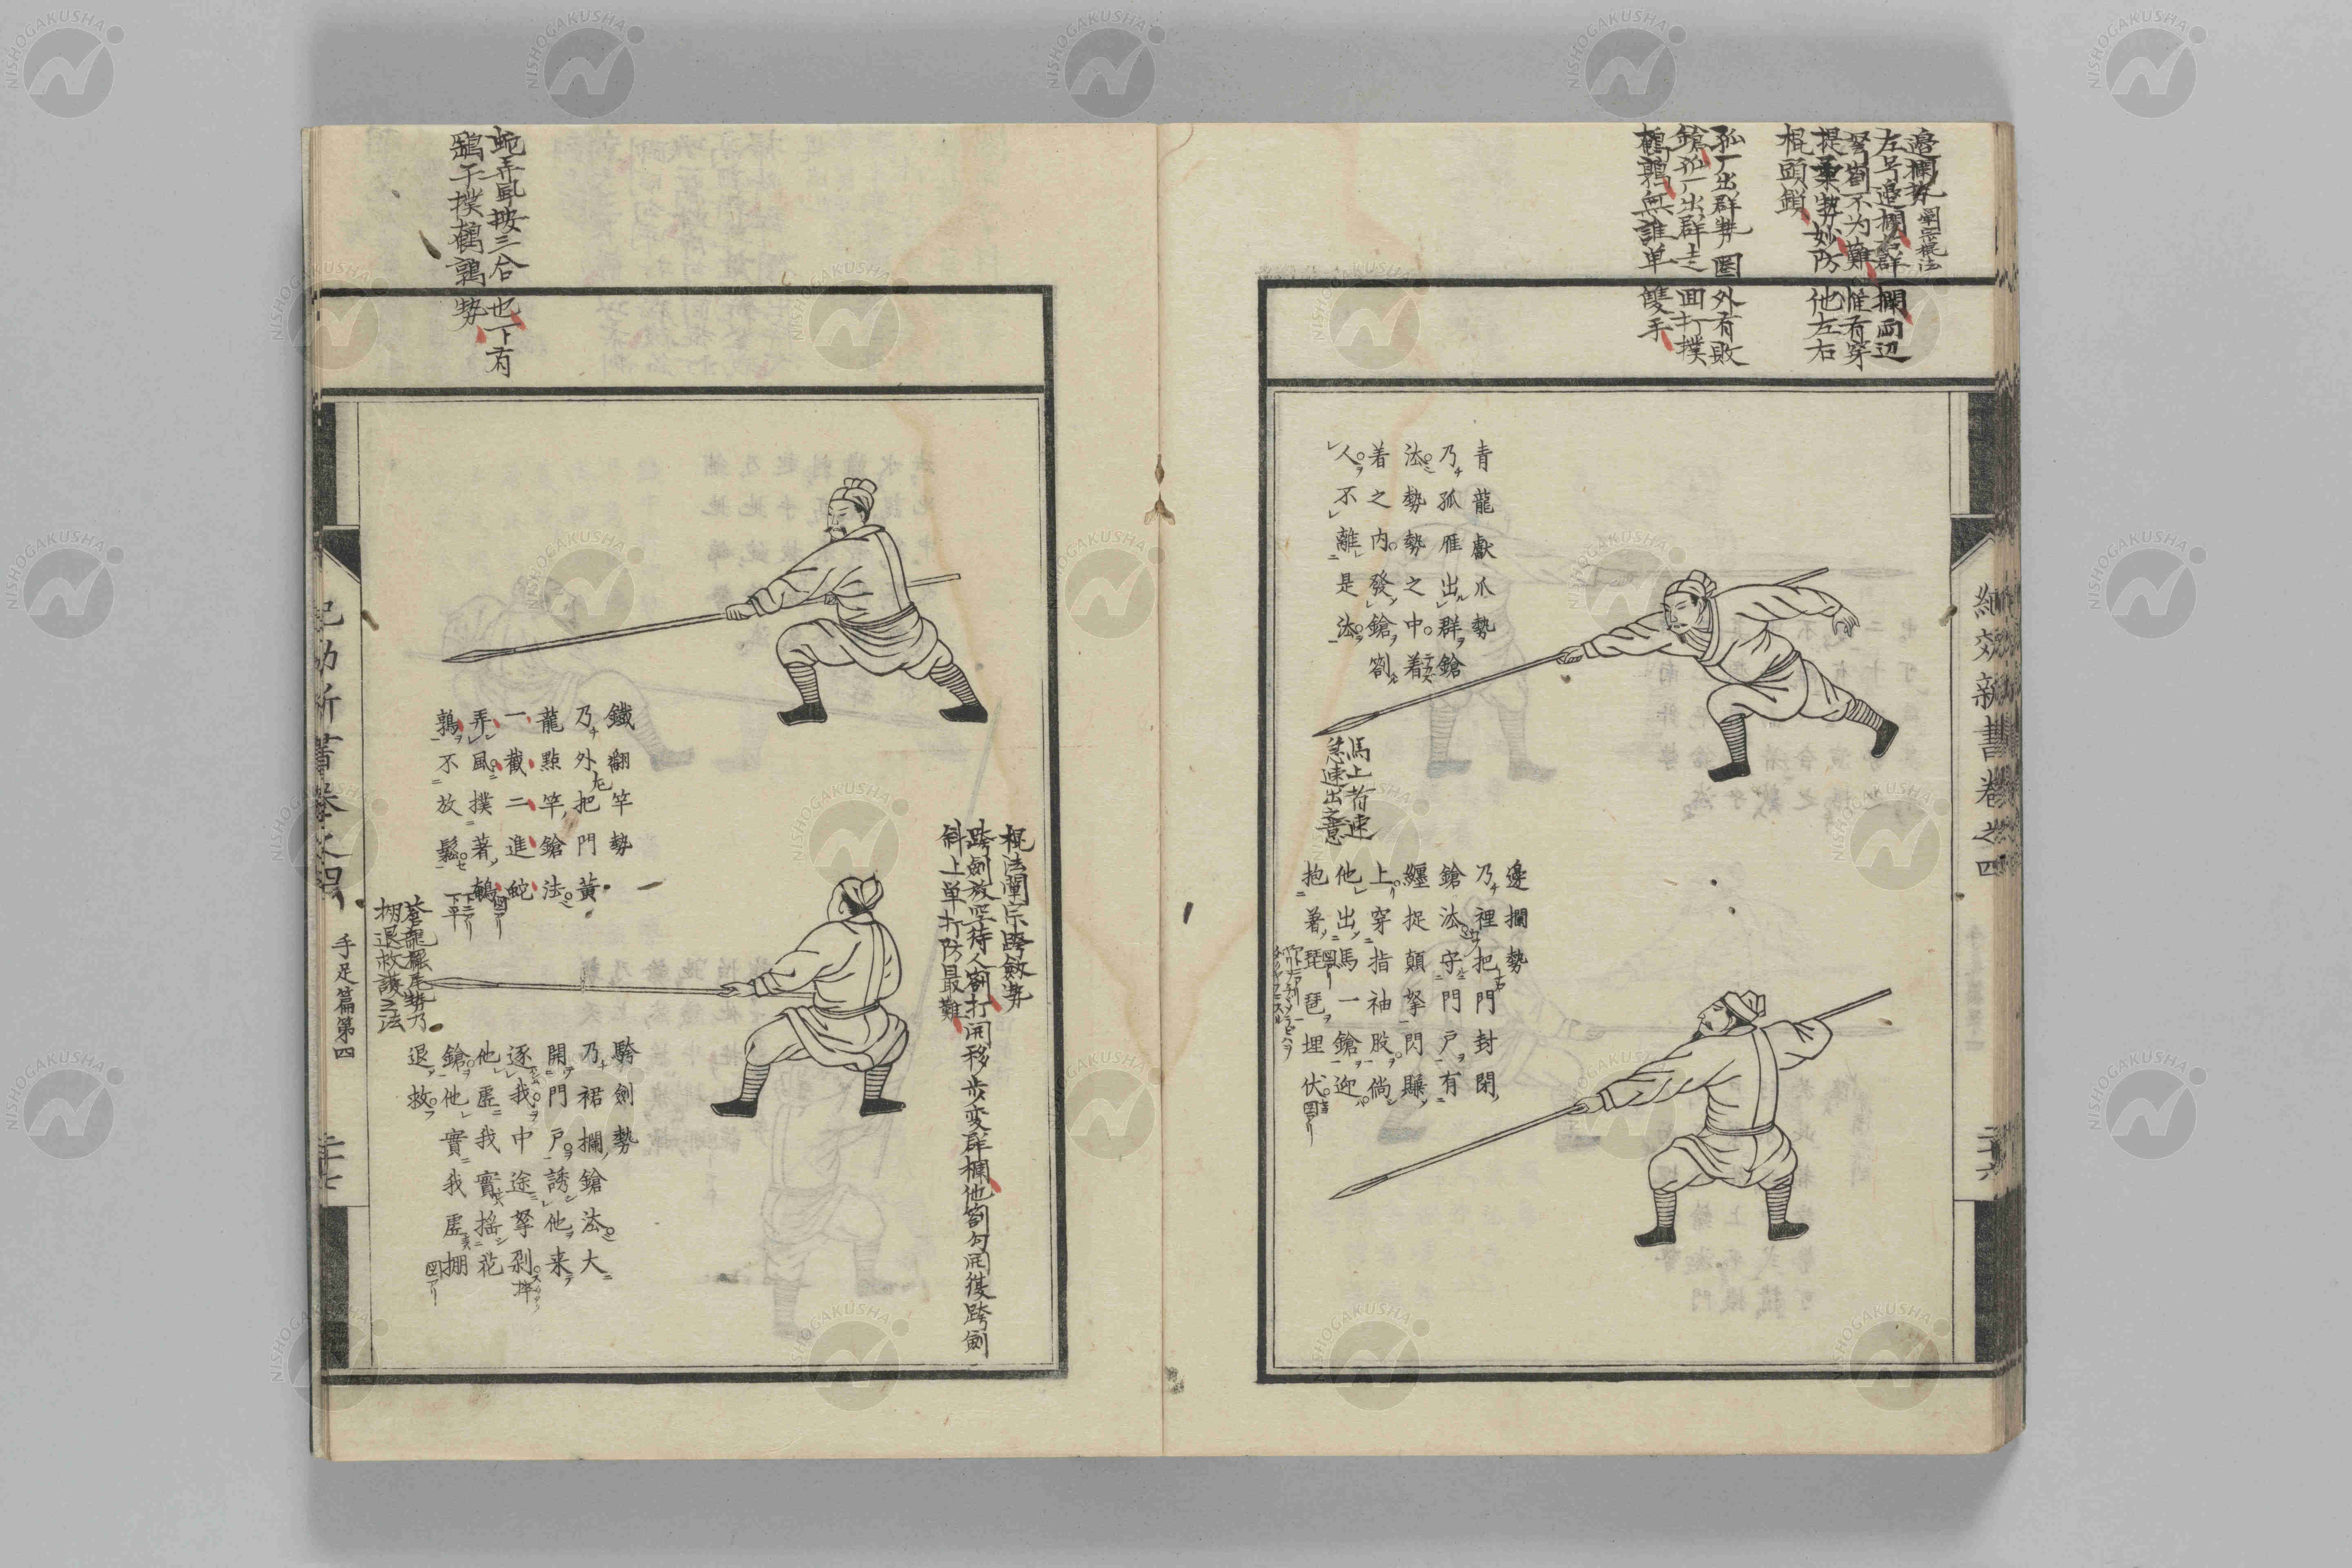 邊攔勢
左号邉攔羣攔兩辺
不为難惟有穿
提事勢妙防他左右
棍頭鎖
孤厂出群勢圏外有敗
鎗孤厂出群走囬打撲
鵪鶉無誰单雙手
紀効新書卷之四
二十六
青龍獻爪勢
乃孤雁出群鎗
法勢勢之中着
着之内發鎗劄
人不離是法
馬上者速
急速出之意
邊攔勢
乃裡把門封閉
鎗法守門户有
纏捉顛拏閃賺
上穿指袖股倘
他出馬一鎗迎
抱著琵琶埋伏
蛇弄風按三合也下有
鷂子撲鵪鶉勢
鐵翻竿勢
乃外把門黃
龍點竿鎗法
一截二進蛇
弄風撲著鵪
鶉不放鬆
棍法闡宗跨劍勢
跨劍放空待人劄打開移步変群攔他劄勾開復跨劍
斜上単打防最難
騎劍勢
乃裙攔鎗法大
開門户誘他来
逐我中途拏剁
他虛我實搖花
鎗他實我虛掤
退救
蒼龍擺尾勢乃
掤退救護之法
紀効新書卷之四
手足篇第四
二十七
NISHOGAKUSHA